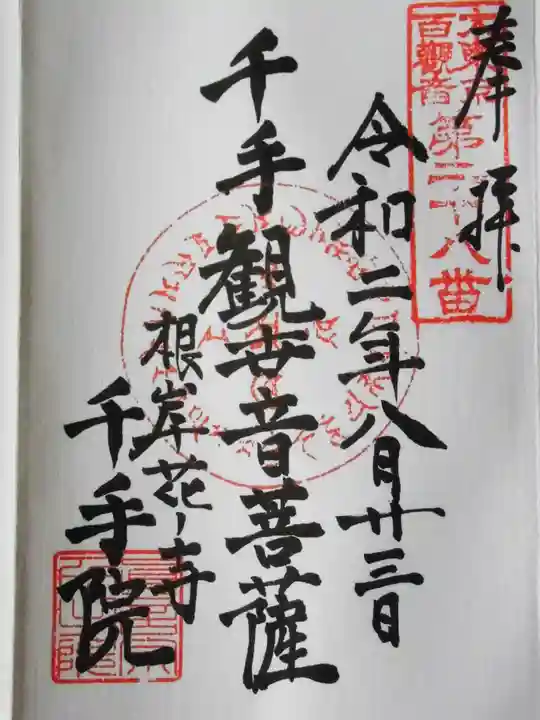 奉拝
大東京
百観音
第二十八番
令和二年八月廿三日
千手観世音菩薩
根岸花ノ寺
千手院